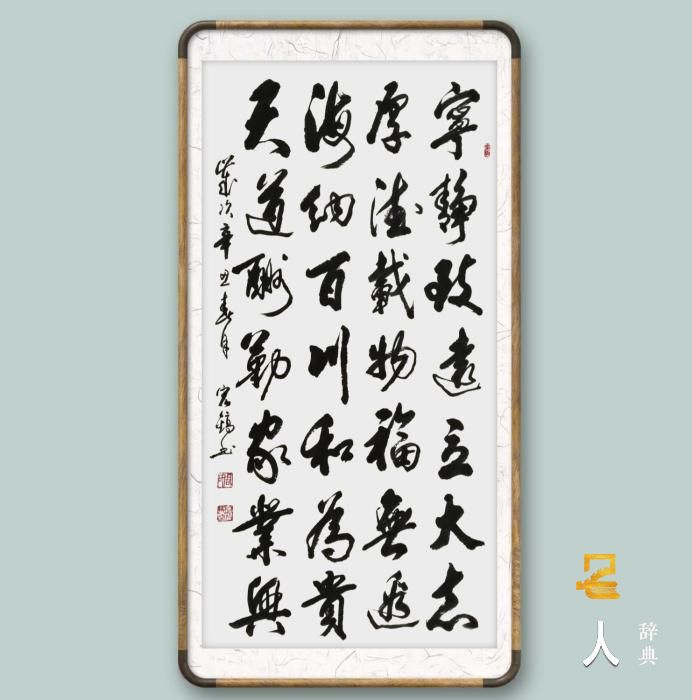 寧靜致遠立大志
厚德載物福無邊
海納百川和為貴
天道酬勤家業興
歲次辛丑春月 宏书
名人
辞典